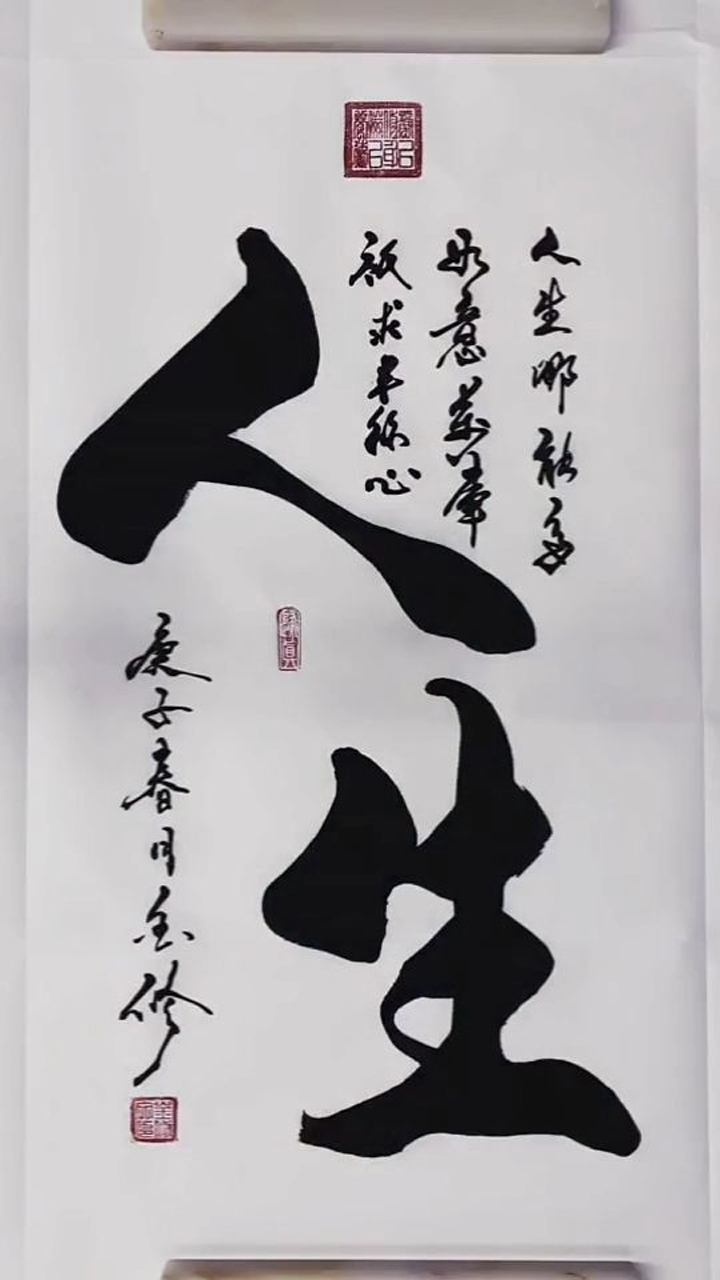 人生
人生哪能多
如意萬事
祇求半称心
庚子春月